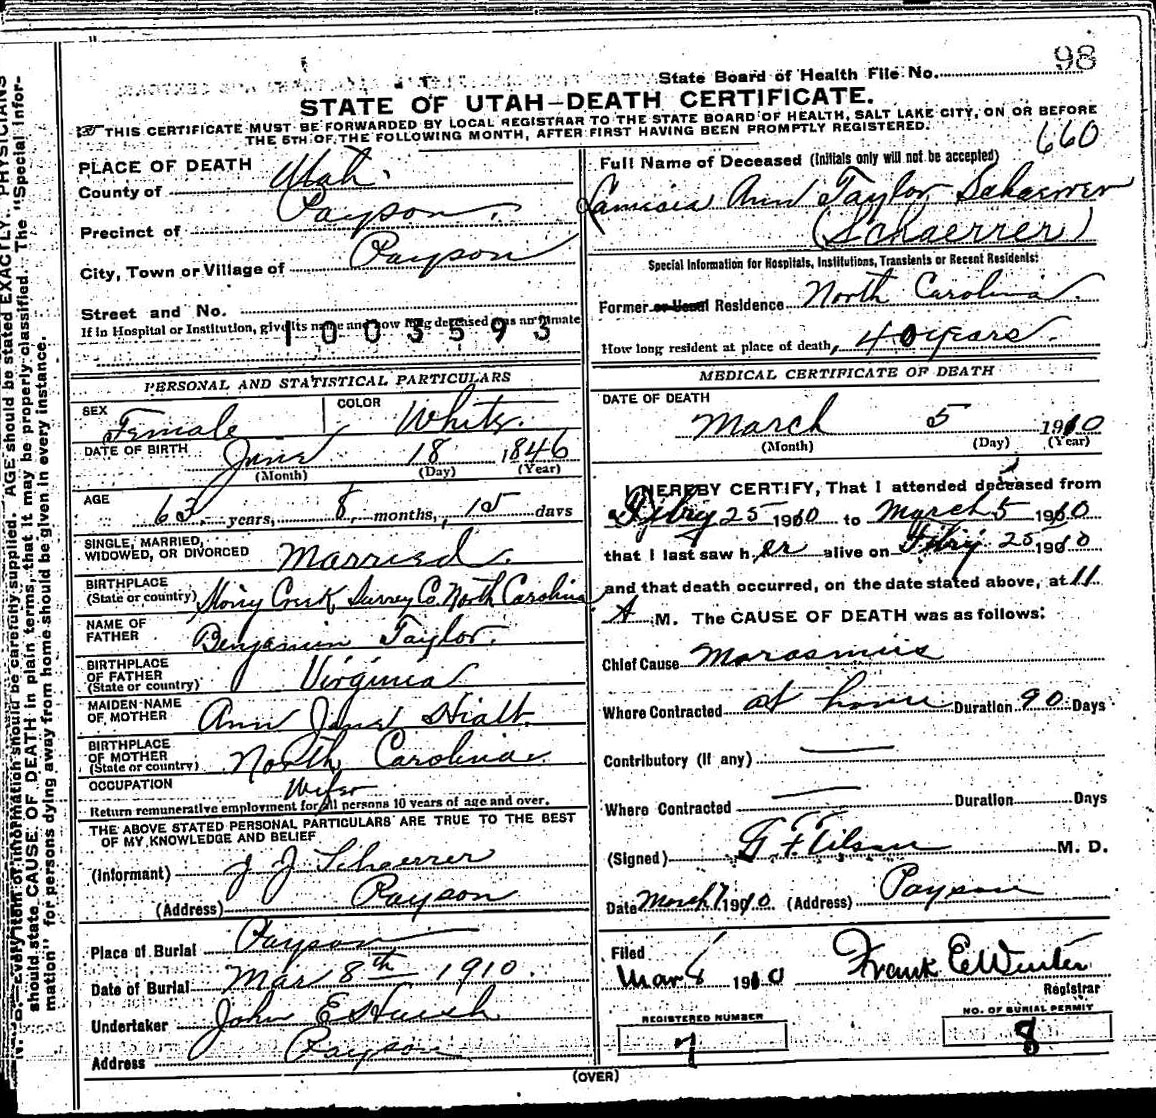 98
State Board of Health File No.
STATE OF UTAH—DEATH CERTIFICATE.
THIS CERTIFICATE MUST BE FORWARDED BY LOCAL REGISTRAR TO THE STATE BOARD OF HEALTH, SALT LAKE CITY, ON OR BEFORE
THE 5TH OF THE FOLLOWING MONTH, AFTER FIRST HAVING BEEN PROMPTLY REGISTERED.
660
PLACE OF DEATH
County of Utah.
Precinct of Payson.
City, Town or Village of Payson
Street and No.
If in Hospital or Institution, give its name and how long deceased was an inmate
1003593
PERSONAL AND STATISTICAL PARTICULARS
SEX Female COLOR White.
DATE OF BIRTH June 18 1846
(Month) (Day) (Year)
AGE 63 years, 8 months, 15 days
SINGLE, MARRIED,
WIDOWED, OR DIVORCED Married.
BIRTHPLACE
(State or country) Creek Surrey Co. North Carolina
NAME OF
FATHER Benjamin Taylor.
BIRTHPLACE
OF FATHER
(State or country) Virginia
MAIDEN NAME
OF MOTHER Ann Jane Hiatt.
BIRTHPLACE
OF MOTHER
(State or country) North Carolina.
OCCUPATION Wife
Return remunerative employment for all persons 10 years of age and over.
THE ABOVE STATED PERSONAL PARTICULARS ARE TRUE TO THE BEST
OF MY KNOWLEDGE AND BELIEF
(Informant) J J Schaerrer
(Address) Payson
Place of Burial Payson
Date of Burial Mar 8th 1910.
Undertaker John E Huish
Address Payson
Full Name of Deceased (Initials only will not be accepted)
Ann Taylor Schaerrer
(Schaerrer)
Special Information for Hospitals, Institutions, Transients or Recent Residents:
Former or Usual Residence North Carolina.
How long resident at place of death, 40 years.
MEDICAL CERTIFICATE OF DEATH
DATE OF DEATH
March 5 1910
(Month) (Day) (Year)
I HEREBY CERTIFY, That I attended deceased from
Febry 25 1910 to March 5 1910
that I last saw her alive on Febry 25 1910
and that death occurred, on the date stated above, at 11
A M. The CAUSE OF DEATH was as follows:
Chief Cause Marasmus
Where Contracted at home Duration 90 Days
Contributory (if any)
Where Contracted Duration Days
(Signed) M. D.
Date March 7 1910 (Address) Payson
Filed
Mar 8 1910 Frank E Winter
Registrar
REGISTERED NUMBER
7
NO. OF BURIAL PERMIT
8
(OVER)
N. B. Every item of information should be carefully supplied. AGE should be stated EXACTLY. PHYSICIANS
should state CAUSE OF DEATH in plain terms, that it may be properly classified. The "Special Infor-
mation" for persons dying away from home should be given in every instance.